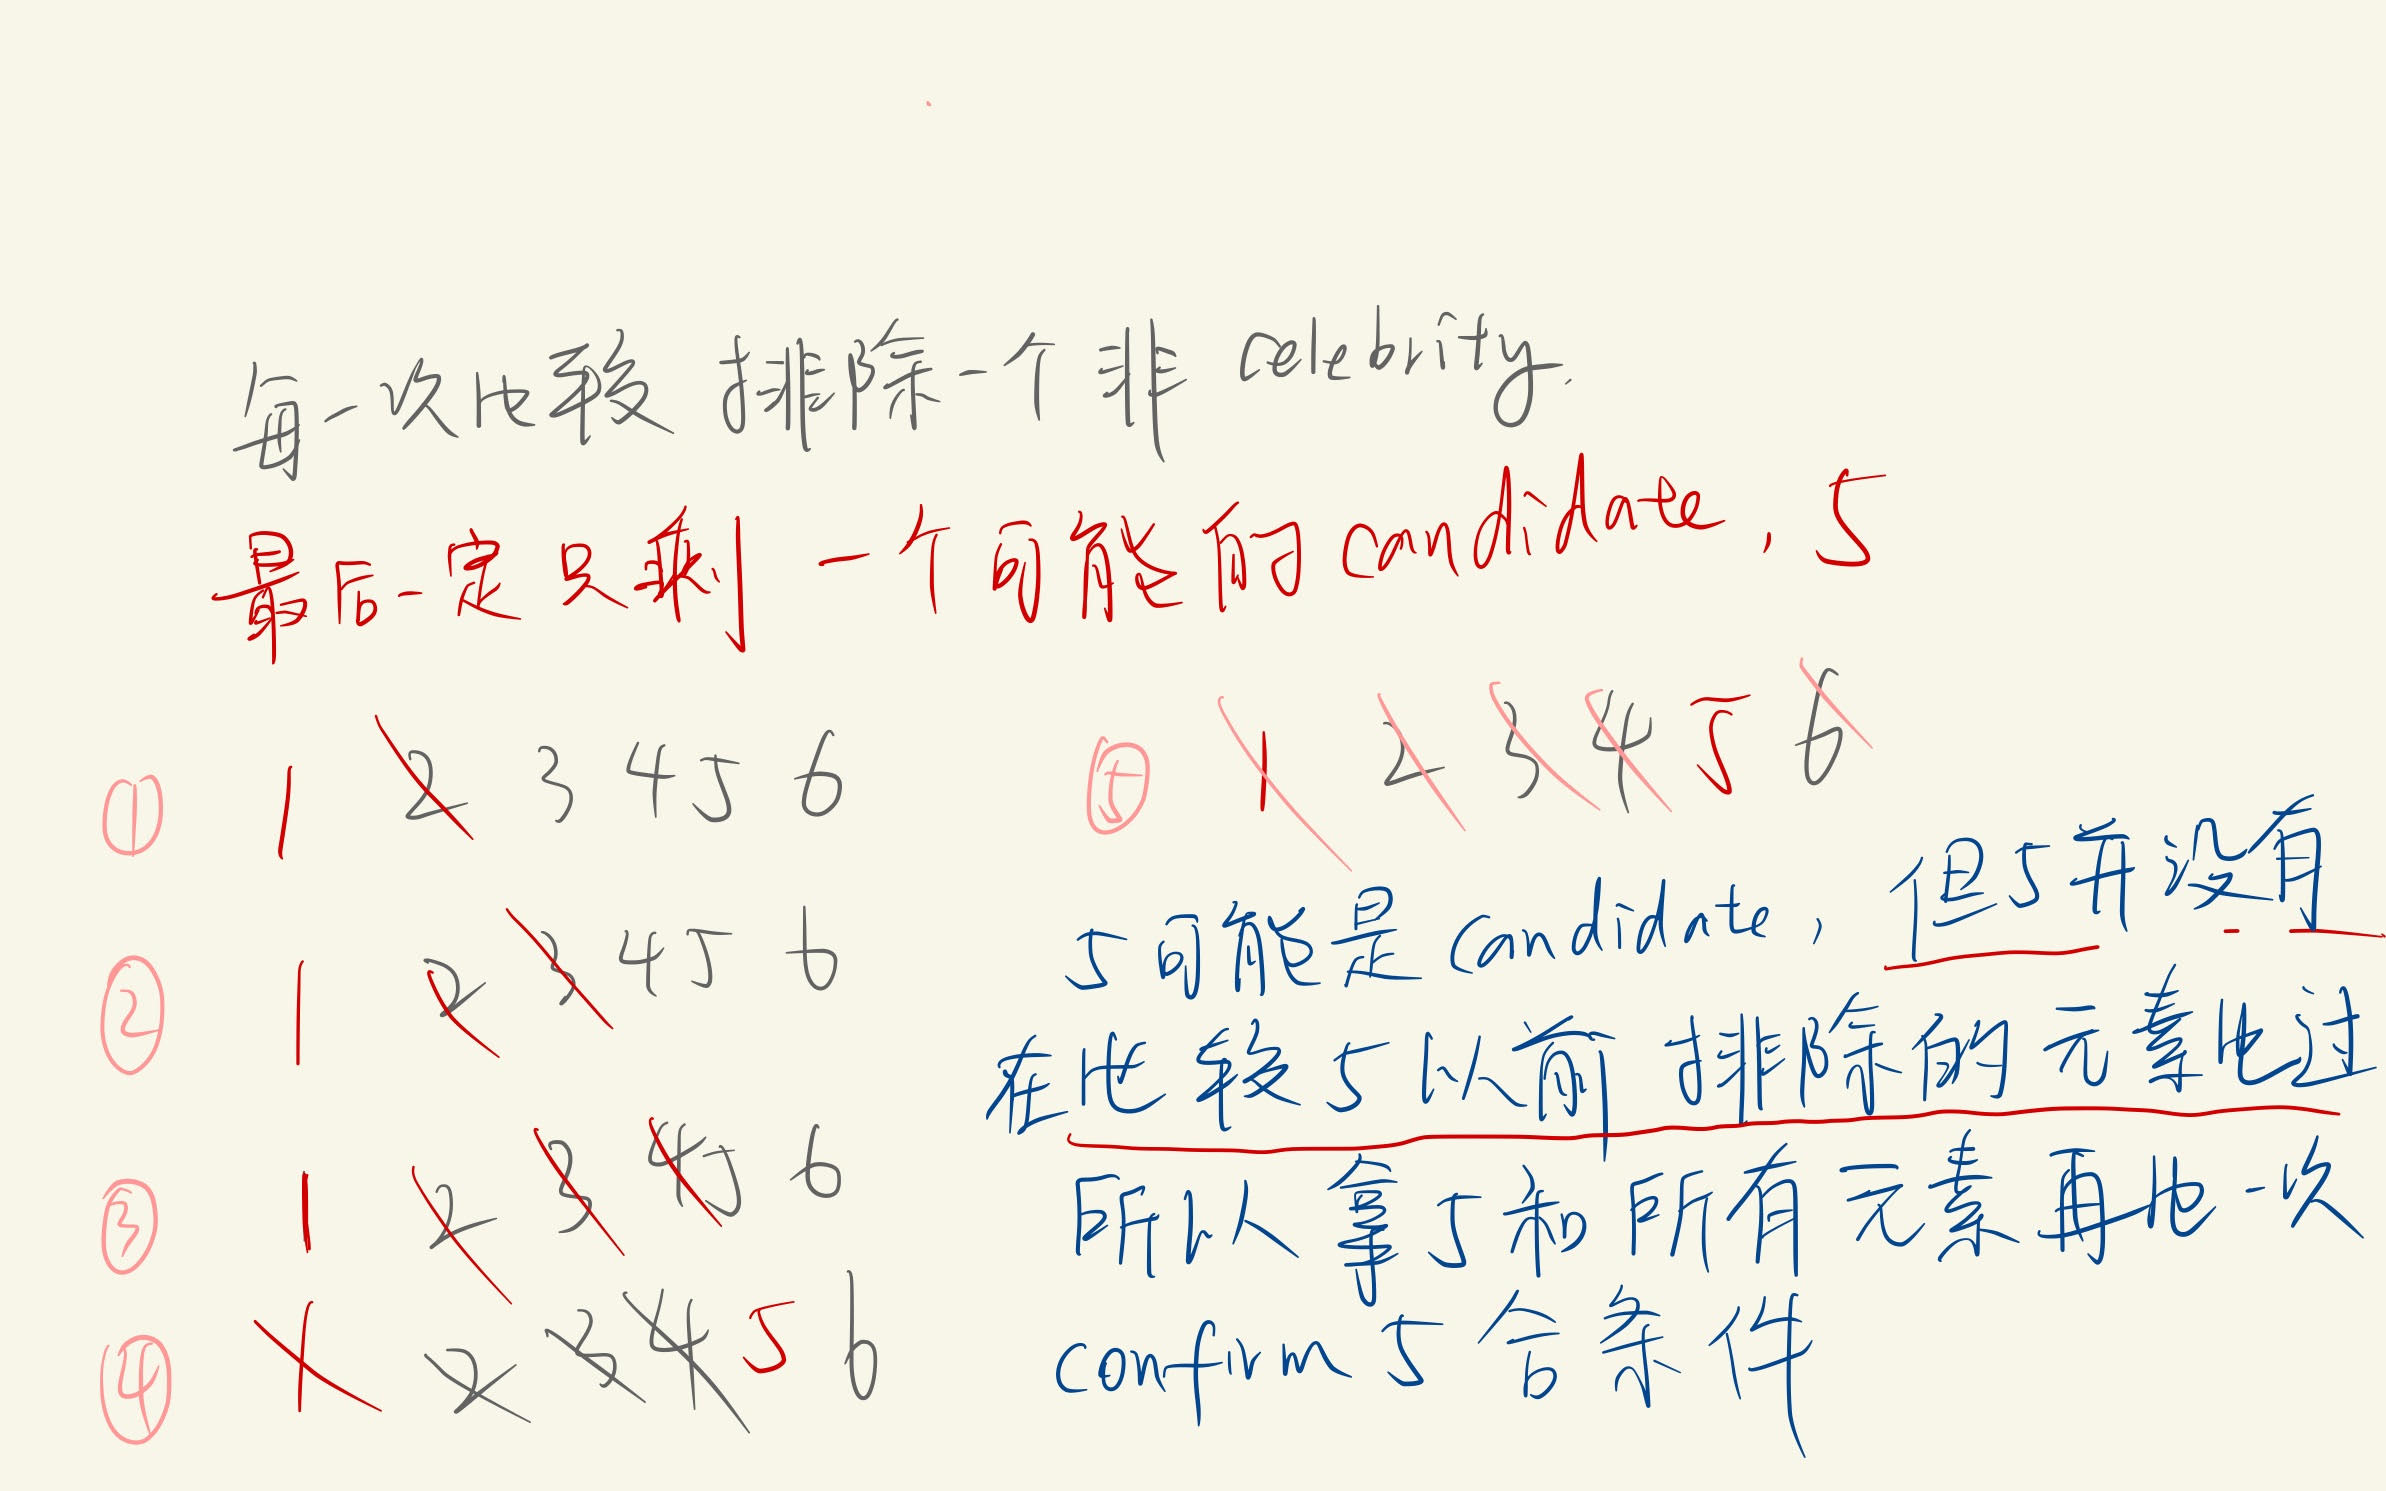 每一次比较 排除一个非 celebrity.
最后一定只剩 一个可能的 candidate, 5
① 1 2 3 4 5 6
② 1 2 3 4 5 6
③ 1 2 3 4 5 6
④ 1 2 3 4 5 6
⑤ 1 2 3 4 5 6
5 可能是 candidate, 但5并没有
在比较5以前 排除的元素比过
所以拿5和所有元素再比一次
confirm 5 合条件